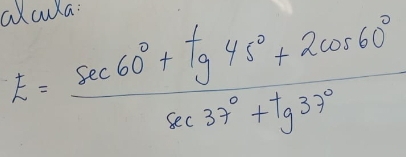 alcula:
E = (sec 60° + tg 45° + 2cos 60°) / (sec 37° + tg 37°)